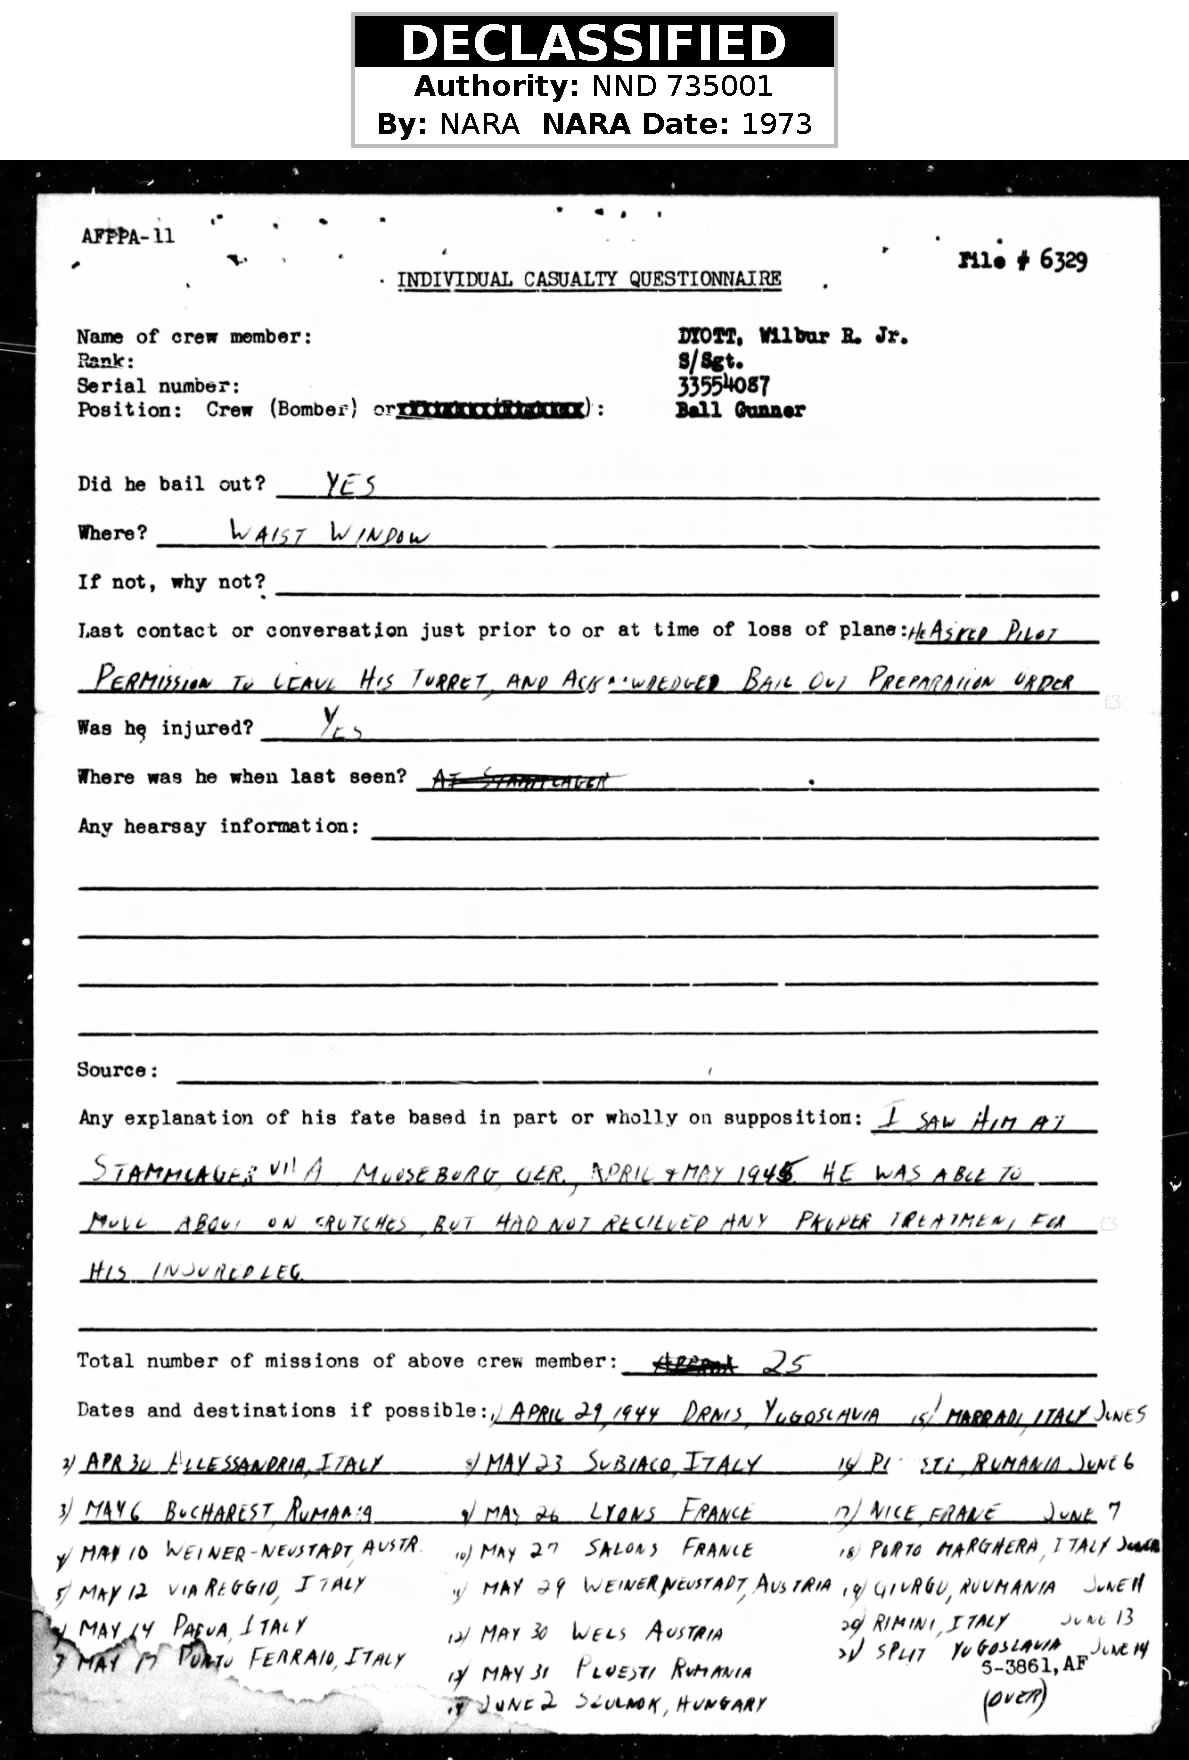 DECLASSIFIED
Authority: NND 735001
By: NARA NARA Date: 1973
AFPPA-11
File # 6329
INDIVIDUAL CASUALTY QUESTIONNAIRE
Name of crew member: DYOTT, Wilbur R. Jr.
Rank: S/Sgt.
Serial number: 33554087
Position: Crew (Bomber) or : Ball Gunner
Did he bail out? YES
Where? WAIST WINDOW
If not, why not?
Last contact or conversation just prior to or at time of loss of plane: HE ASKED PILOT
PERMISSION TO LEAVE HIS TURRET, AND ACKNOWLEDGED BAIL OUT PREPARATION ORDER
Was he injured? YES
Where was he when last seen? AT STAMMLAGER
Any hearsay information:
Source:
Any explanation of his fate based in part or wholly on supposition: I SAW HIM AT
STAMMLAGER VII A MOOSEBURG, GER., APRIL & MAY 1945. HE WAS ABLE TO
MOVE ABOUT ON CRUTCHES, BUT HAD NOT RECIEVED ANY PROPER TREATMENT FOR
HIS INJURED LEG.
Total number of missions of above crew member: 25
Dates and destinations if possible: 1) APRIL 29, 1944 DRNIS, YUGOSLAVIA 15) MARRADI, ITALY JUNE 5
2) APR 30 ALLESSANDRIA, ITALY 8) MAY 23 SUBIACO, ITALY 16) PL STI, RUMANIA JUNE 6
3) MAY 6 BUCHAREST, RUMANIA 9) MAY 26 LYONS FRANCE 17) NICE, FRANE JUNE 7
4) MAY 10 WEINER-NEUSTADT, AUSTR. 10) MAY 27 SALONS FRANCE 18) PORTO MARGHERA, ITALY
5) MAY 12 VIA REGGIO, ITALY 11) MAY 29 WEINER NEUSTADT, AUSTRIA 19) GIURGU, ROUMANIA JUNE 11
MAY 14 PADUA, ITALY 12) MAY 30 WELS AUSTRIA 20) RIMINI, ITALY JUNE 13
7 MAY 17 PORTO FERRAIO, ITALY 13) MAY 31 PLOESTI RUMANIA 21) SPLIT YUGOSLAVIA JUNE 14
14) JUNE 2 SZOLNOK, HUNGARY
S-3861, AF
(OVER)